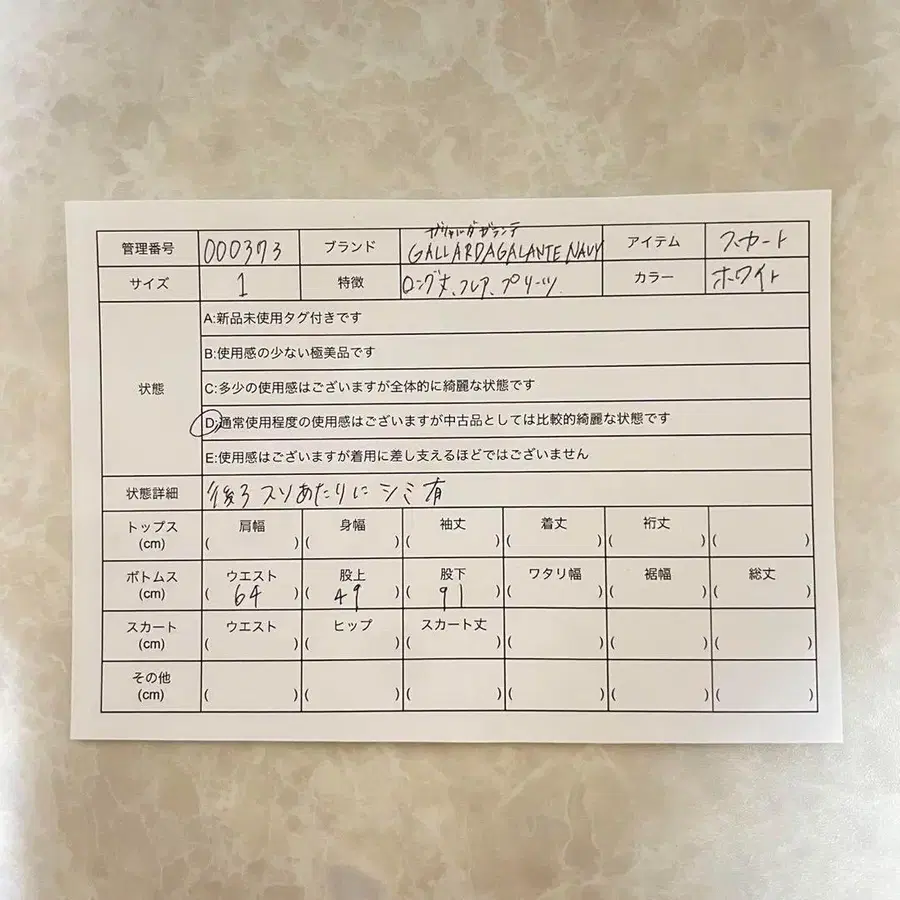 管理番号 000373 ブランド ガリャルダガランテ GALLARDAGALANTE NAVY アイテム スカート
サイズ 1 特徴 ロング丈、フレア、プリーツ カラー ホワイト
A:新品未使用タグ付きです
B:使用感の少ない極美品です
状態 C:多少の使用感はございますが全体的に綺麗な状態です
D:通常使用程度の使用感はございますが中古品としては比較的綺麗な状態です
E:使用感はございますが着用に差し支えるほどではございません
状態詳細 後ろスソあたりにシミ有
トップス 肩幅 身幅 袖丈 着丈 裄丈
(cm) ( ) ( ) ( ) ( ) ( ) ( )
ボトムス ウエスト 股上 股下 ワタリ幅 裾幅 総丈
(cm) ( 64 ) ( 49 ) ( 91 ) ( ) ( ) ( )
スカート ウエスト ヒップ スカート丈
(cm) ( ) ( ) ( ) ( ) ( ) ( )
その他
(cm) ( ) ( ) ( ) ( ) ( ) ( )